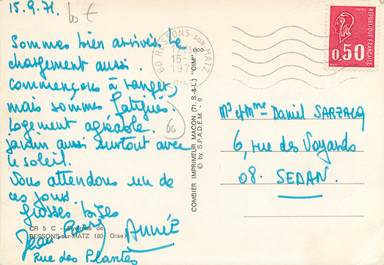 15.9.71.
10 €
Sommes bien arrivés. Le
chargement aussi.
Commençons à ranger,
mais sommes fatigués.
logement agréable.
jardin aussi surtout avec
le soleil.
Vous attendons un de
ces jours
Grosses bises
Jean
Année
Rue des Plantes
CR 5 C
RESSONS-sur-MATZ (60. Oise)
60
COMBIER IMPRIMEUR MACON (71. S.-&-L.) "CIM"
© by S.P.A.D.E.M.
60 RESSONS SUR MATZ
15-9
1971
RÉPUBLIQUE FRANÇAISE
0,50
Mr et Mme Daniel SARZACQ
6, rue des Voyards
08. SEDAN